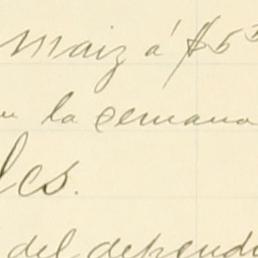 Maiz á $5
la semana
les.
del depend